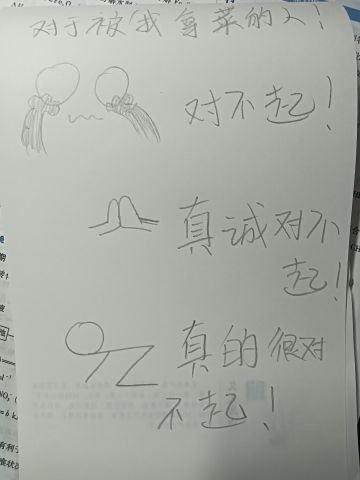 对于被我拿菜的人！
对不起！
真诚对不
起！
真的很对
不起！